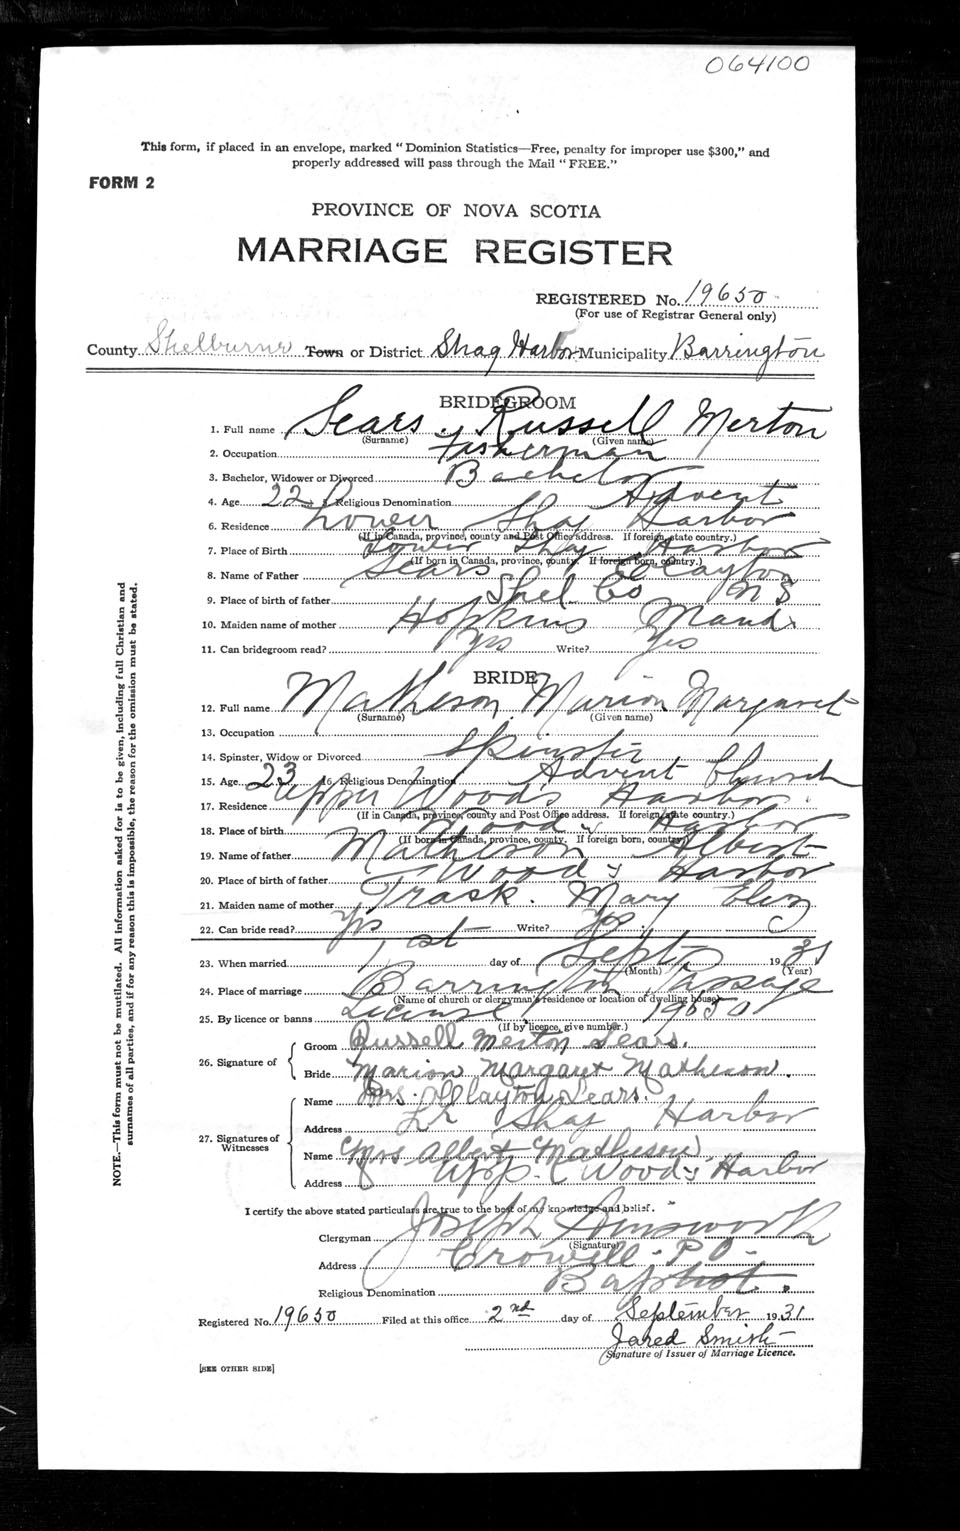 064100
This form, if placed in an envelope, marked "Dominion Statistics—Free, penalty for improper use $300," and
properly addressed will pass through the Mail "FREE."
FORM 2
PROVINCE OF NOVA SCOTIA
MARRIAGE REGISTER
REGISTERED No. 19650
(For use of Registrar General only)
County Shelburne Town or District Shag Harbor Municipality Barrington
BRIDEGROOM
1. Full name Sears. Russell Merton
(Surname) (Given name)
2. Occupation Fisherman
3. Bachelor, Widower or Divorced Bachelor
4. Age 22 5. Religious Denomination Advent
6. Residence Lower Shag Harbor
(If in Canada, province, county and Post Office address. If foreign, state country.)
7. Place of Birth Lower Shag Harbor
(If born in Canada, province, county. If foreign born, country.)
8. Name of Father Sears Clayton
9. Place of birth of father Shel Co N S
10. Maiden name of mother Hopkins Maud.
11. Can bridegroom read? Yes Write? Yes
BRIDE
12. Full name Matheson, Marion Margaret
(Surname) (Given name)
13. Occupation
14. Spinster, Widow or Divorced Spinster
15. Age 23 16. Religious Denomination Advent Church
17. Residence Upper Woods Harbor.
(If in Canada, province, county and Post Office address. If foreign, state country.)
18. Place of birth Woods Harbor
(If born in Canada, province, county. If foreign born, country.)
19. Name of father Matheson Albert
20. Place of birth of father Woods Harbor
21. Maiden name of mother Trask. Mary Eliz
22. Can bride read? Yes Write? Yes.
23. When married 1st day of Sept 1931
(Month) (Year)
24. Place of marriage Barrington Passage
(Name of church or clergyman's residence or location of dwelling house)
25. By licence or banns License 19650
(If by licence, give number.)
26. Signature of
Groom Russell Merton Sears.
Bride Marion Margaret Matheson.
27. Signatures of Witnesses
Name Mrs. Clayton Sears.
Address Lr Shag Harbor
Name Mrs Albert Matheson
Address Upp. Woods Harbor
I certify the above stated particulars are true to the best of my knowledge and belief.
Clergyman Joseph Ainsworth
(Signature)
Address Crowell - P O -
Religious Denomination Baptist.
Registered No. 19650 Filed at this office 2nd day of September 1931
Jared Smith
(Signature of Issuer of Marriage Licence.
[SEE OTHER SIDE]
NOTE.—This form must not be mutilated. All information asked for is to be given, including full Christian and
surnames of all parties, and if for any reason this is impossible, the reason for the omission must be stated.